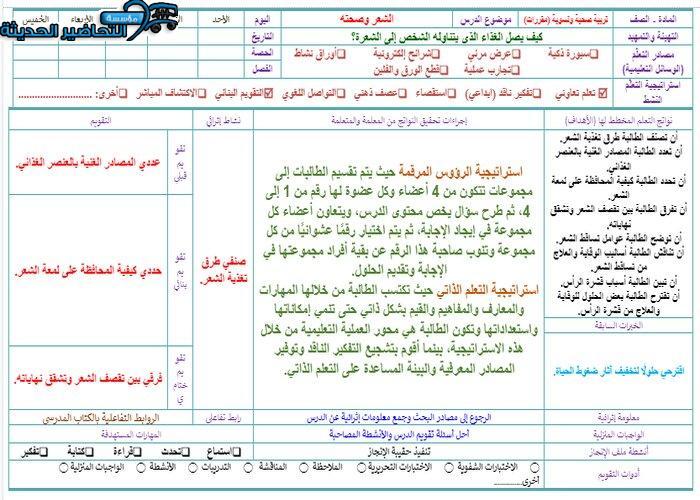 مؤسسة
التحاضير الحديثة
المادة ـ الصف
تربية صحية ونسوية (مقررات)
موضوع الدرس
الشعر وصحته
اليوم
الأحد
الأربعاء
الخميس
التهيئة والتمهيد
كيف يصل الغذاء الذى يتناوله الشخص إلى الشعرة؟
التاريخ
مصادر التعلم
(الوسائل التعليمية)
❏سبورة ذكية ❏عرض مرئي ❏شرائح إلكترونية ❏أوراق نشاط
❏تجارب عملية ❏قطع الورق والفلين
الحصة
الفصل
استراتيجية التعلم
النشط
☑تعلم تعاوني ❏تفكير ناقد (ابداعي) ❏استقصاء ❏عصف ذهني ❏التواصل اللغوي ☑التقويم البنائي ❏الاكتشاف المباشر ❏أخرى: ............................
نواتج التعلم المخطط لها (الأهداف)
إجراءات تحقيق النواتج من المعلمة والمتعلمة
نشاط إثرائي
التقويم
أن تصنف الطالبة طرق تغذية الشعر.
أن تعدد الطالبة المصادر الغنية بالعنصر
الغذائي.
أن تحدد الطالبة كيفية المحافظة على لمعة
الشعر.
أن تفرق الطالبة بين تقصف الشعر وتشقق
نهاياته.
أن توضح الطالبة عوامل تساقط الشعر.
أن تناقش الطالبة أساليب الوقاية والعلاج
من تساقط الشعر.
أن تبين الطالبة أسباب قشرة الرأس.
أن تقترح الطالبة بعض الحلول للوقاية
والعلاج من قشرة الرأس.
الخبرات السابقة
اقترحي حلولًا لتخفيف آثار ضغوط الحياة.
استراتيجية الرؤوس المرقمة حيث يتم تقسيم الطالبات إلى
مجموعات تتكون من 4 أعضاء وكل عضوة لها رقم من 1 إلى
4، ثم طرح سؤال يخص محتوى الدرس، ويتعاون أعضاء كل
مجموعة في إيجاد الإجابة، ثم يتم اختيار رقمًا عشوائيًا من كل
مجموعة وتنوب صاحبة هذا الرقم عن بقية أفراد مجموعتها في
الإجابة وتقديم الحلول.
استراتيجية التعلم الذاتي حيث تكتسب الطالبة من خلالها المهارات
والمعارف والمفاهيم والقيم بشكل ذاتي حتى تنمي إمكاناتها
واستعداداتها وتكون الطالبة هي محور العملية التعليمية من خلال
هذه الاستراتيجية، بينما أقوم بتشجيع التفكير الناقد وتوفير
المصادر المعرفية والبيئة المساعدة على التعلم الذاتي.
صنفي طرق
تغذية الشعر.
تقو
يم
قبلي
عددي المصادر الغنية بالعنصر الغذائي.
تقو
يم
بنائي
حددي كيفية المحافظة على لمعة الشعر.
تقو
يم
ختام
ي
فرقي بين تقصف الشعر وتشقق نهاياته.
معلومة إثرائية
الرجوع إلى مصادر البحث وجمع معلومات إثرائية عن الدرس
رابط تفاعلى
الروابط التفاعلية بالكتاب المدرسى
الواجبات المنزلية
أحل أسئلة تقويم الدرس والأنشطة المصاحبة
المهارات المستهدفة
أنشطة ملف الإنجاز
تنفيذ حقيبة الإنجاز
❏استماع ❏تحدث ❏قراءة ❏كتابة ❏تفكير
أدوات التقويم
○ الاختبارات الشفوية ○ الاختبارات التحريرية ○ الملاحظة ○ المناقشة ○ التدريبات ○ الأنشطة ○ الواجبات المنزلية ○
أخرى..............